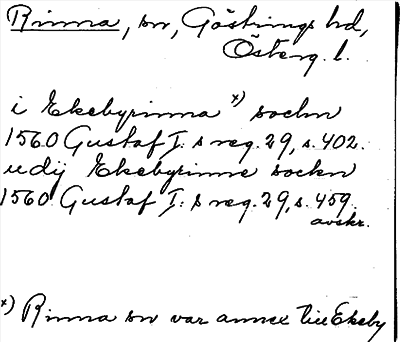 Rinna, sn, Göstrings hd,
Österg. l.
i Ekebyrinna x) sochn
1560 Gustaf I:s reg. 29, s. 402.
udij Ekebyrinne sockn
1560 Gustaf I:s reg. 29, s. 459.
avskr.
x) Rinna sn var annex till Ekeby